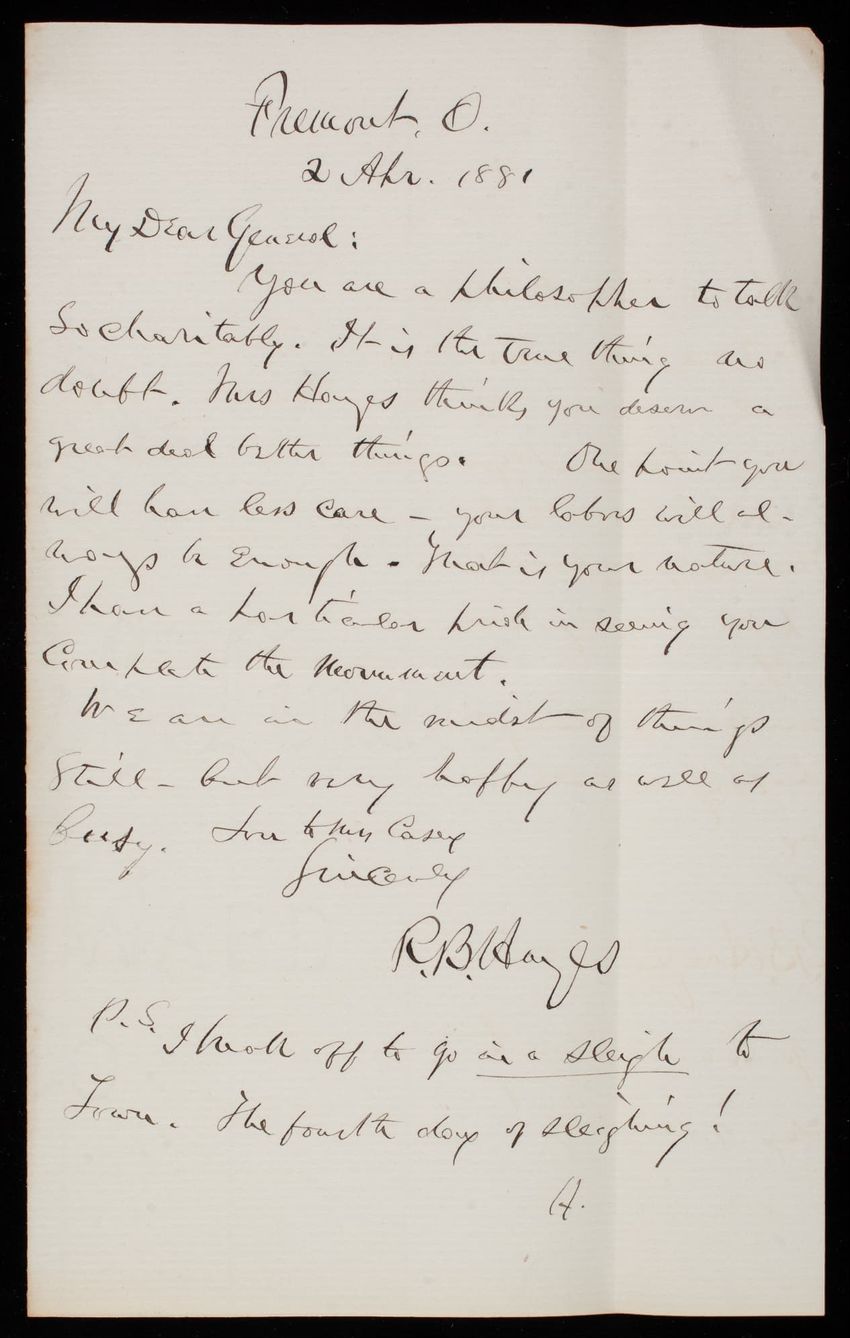 Fremont, O.
2 Apr. 1881
My Dear General:
You are a philosopher to talk
so charitably. It is the true thing no
doubt. Mrs Hayes thinks you deserve a
great deal better things. One point you
will have less care - your labors will al-
ways be enough. That is your nature.
I have a particular pride in seeing you
complete the Monument.
We are in the midst of things
still - but very happy as well as
busy. Love to Mrs Casey
Sincerely
R.B. Hayes
P.S. I break off to go in a sleigh to
Town. The fourth day of sleighing!
H.